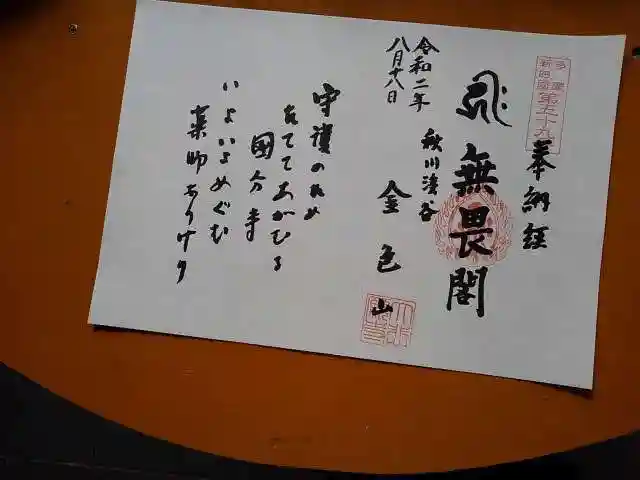 多摩
新四國
第五十九
奉納経
無畏閣
秋川渓谷
金色山
令和二年
八月十八日
守護のため
たててあがむる
國分寺
いよいよめぐむ
薬師なりけり